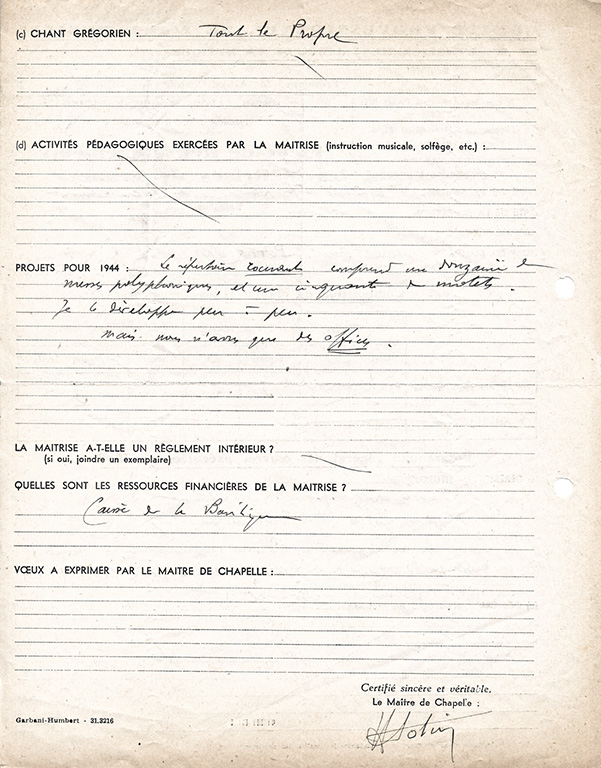 (c) CHANT GRÉGORIEN : Tout le Propre
(d) ACTIVITÉS PÉDAGOGIQUES EXERCÉES PAR LA MAITRISE (instruction musicale, solfège, etc.) :
PROJETS POUR 1944 : Le répertoire courant comprend une douzaine de
messes polyphoniques, et une cinquantaine de motets.
Je le développe peu à peu.
Mais nous n'avons que des offices.
LA MAITRISE A-T-ELLE UN RÈGLEMENT INTÉRIEUR ?
(si oui, joindre un exemplaire)
QUELLES SONT LES RESSOURCES FINANCIÈRES DE LA MAITRISE ?
Caisse de la Basilique
VŒUX A EXPRIMER PAR LE MAITRE DE CHAPELLE :
Certifié sincère et véritable.
Le Maître de Chapelle :
Garbani-Humbert - 31.3216